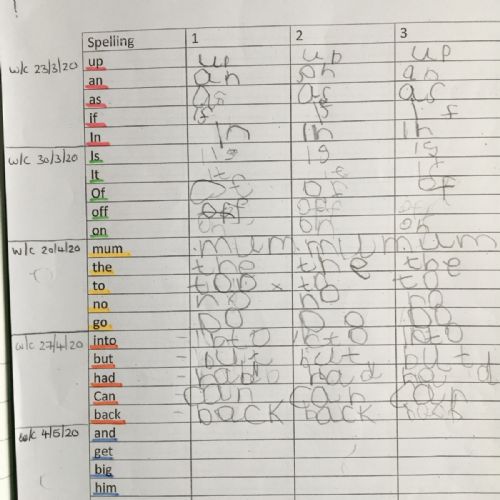 Spelling 1 2 3
w/c 23/3/20 up up up up
an an an an
as as as as
if if if if
In In In In
w/c 30/3/20 Is is is is
It it it it
Of Of Of Of
off off off off
on on on on
w/c 20/4/20 mum mum mum mum
the the the the
to too x to to
no no no no
go
w/c 27/4/20 into
but but but but
had had had
Can Can Can Can
back back back back
w/c 4/5/20 and
get
big
him